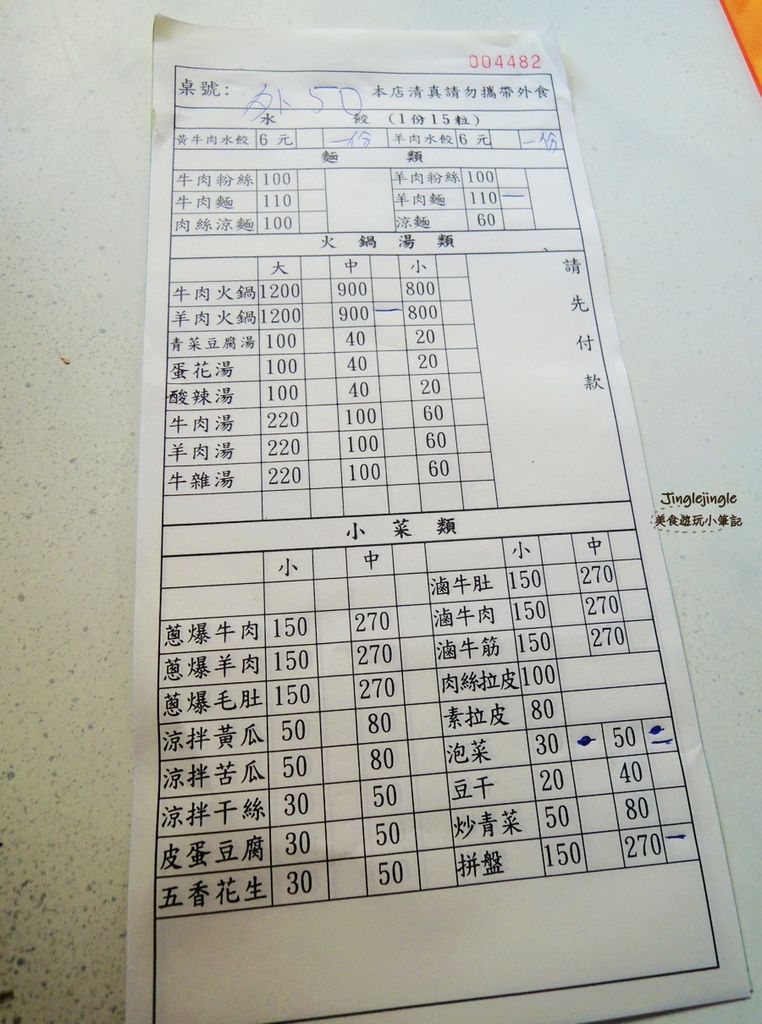 004482
桌號: 外 50 本店清真請勿攜帶外食
水 餃 (1份15粒)
黃牛肉水餃 6元 一份 羊肉水餃 6元 一份
麵 類
牛肉粉絲 100 羊肉粉絲 100
牛肉麵 110 羊肉麵 110 一
肉絲涼麵 100 涼麵 60
火 鍋 湯 類
大 中 小
牛肉火鍋 1200 900 800
羊肉火鍋 1200 900 一 800
青菜豆腐湯 100 40 20
蛋花湯 100 40 20
酸辣湯 100 40 20
牛肉湯 220 100 60
羊肉湯 220 100 60
牛雜湯 220 100 60
請先付款
小 菜 類
小 中 小 中
滷牛肚 150 270
蔥爆牛肉 150 270 滷牛肉 150 270
蔥爆羊肉 150 270 滷牛筋 150 270
蔥爆毛肚 150 270 肉絲拉皮 100
涼拌黃瓜 50 80 素拉皮 80
涼拌苦瓜 50 80 泡菜 30 50 二
涼拌干絲 30 50 豆干 20 40
皮蛋豆腐 30 50 炒青菜 50 80
五香花生 30 50 拼盤 150 270 一
Jinglejingle
美食遊玩小筆記